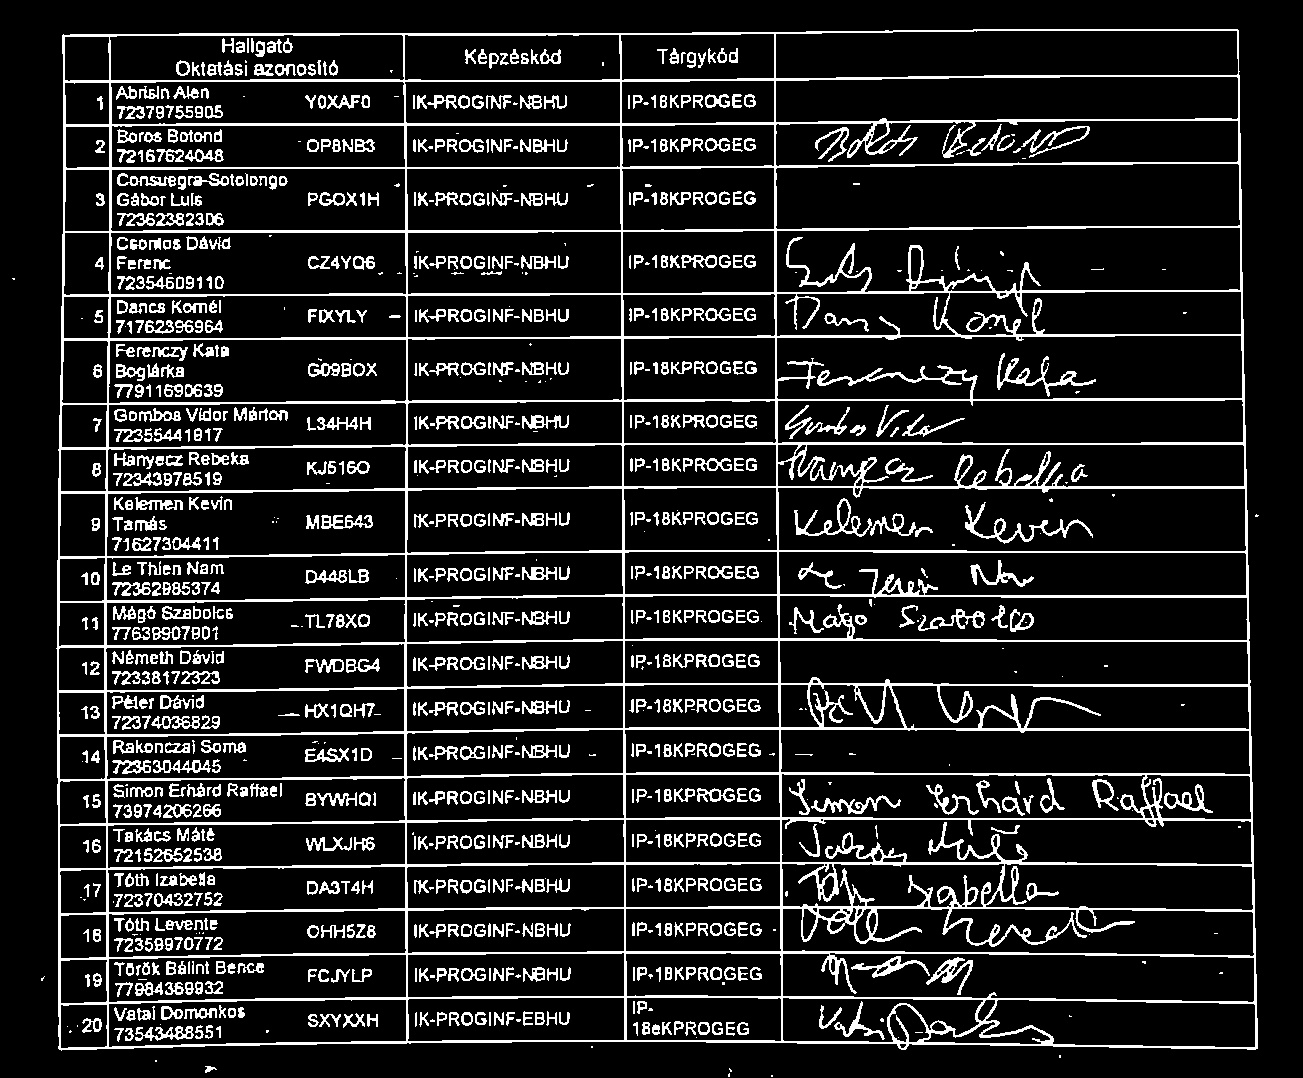 Hallgató
Oktatási azonosító
Képzéskód
Tárgykód
1 Abrisin Alen
72379755905 Y0XAF0 IK-PROGINF-NBHU IP-18KPROGEG
2 Boros Botond
72167624048 OP8NB3 IK-PROGINF-NBHU IP-18KPROGEG Boros Botond
3 Consuegra-Sotolongo
Gábor Luis
72362382306 PGOX1H IK-PROGINF-NBHU IP-18KPROGEG
4 Csontos Dávid
Ferenc
72354609110 CZ4YQ6 IK-PROGINF-NBHU IP-18KPROGEG
5 Dancs Kornél
71762396964 FIXYLY IK-PROGINF-NBHU IP-18KPROGEG Dancs Kornél
6 Ferenczy Kata
Boglárka
77911690639 G09BOX IK-PROGINF-NBHU IP-18KPROGEG Ferenczy Kata
7 Gombos Vidor Márton
72355441817 L34H4H IK-PROGINF-NBHU IP-18KPROGEG Gombos Vidor
8 Hanyecz Rebeka
72343978519 KJ516O IK-PROGINF-NBHU IP-18KPROGEG Hanyecz Rebeka
9 Kelemen Kevin
Tamás
71627304411 MBE643 IK-PROGINF-NBHU IP-18KPROGEG Kelemen Kevin
10 Le Thien Nam
72362985374 D448LB IK-PROGINF-NBHU IP-18KPROGEG
11 Mágó Szabolcs
77639907901 TL78XO IK-PROGINF-NBHU IP-18KPROGEG Mágó Szabolcs
12 Németh Dávid
72338172323 FWDBG4 IK-PROGINF-NBHU IP-18KPROGEG
13 Péter Dávid
72374036829 HX1QH7 IK-PROGINF-NBHU IP-18KPROGEG
14 Rakonczai Soma
72363044045 E4SX1D IK-PROGINF-NBHU IP-18KPROGEG
15 Simon Erhárd Raffael
73974206266 BYWHQI IK-PROGINF-NBHU IP-18KPROGEG Simon Erhárd Raffael
16 Takács Máté
72152652538 WLXJH6 IK-PROGINF-NBHU IP-18KPROGEG Takács Máté
17 Tóth Izabella
72370432752 DA3T4H IK-PROGINF-NBHU IP-18KPROGEG Tóth Izabella
18 Tóth Levente
72359970772 OHH5Z8 IK-PROGINF-NBHU IP-18KPROGEG
19 Török Bálint Bence
77984369932 FCJYLP IK-PROGINF-NBHU IP-18KPROGEG
20 Vatai Domonkos
73543488551 SXYXXH IK-PROGINF-EBHU IP-
18eKPROGEG